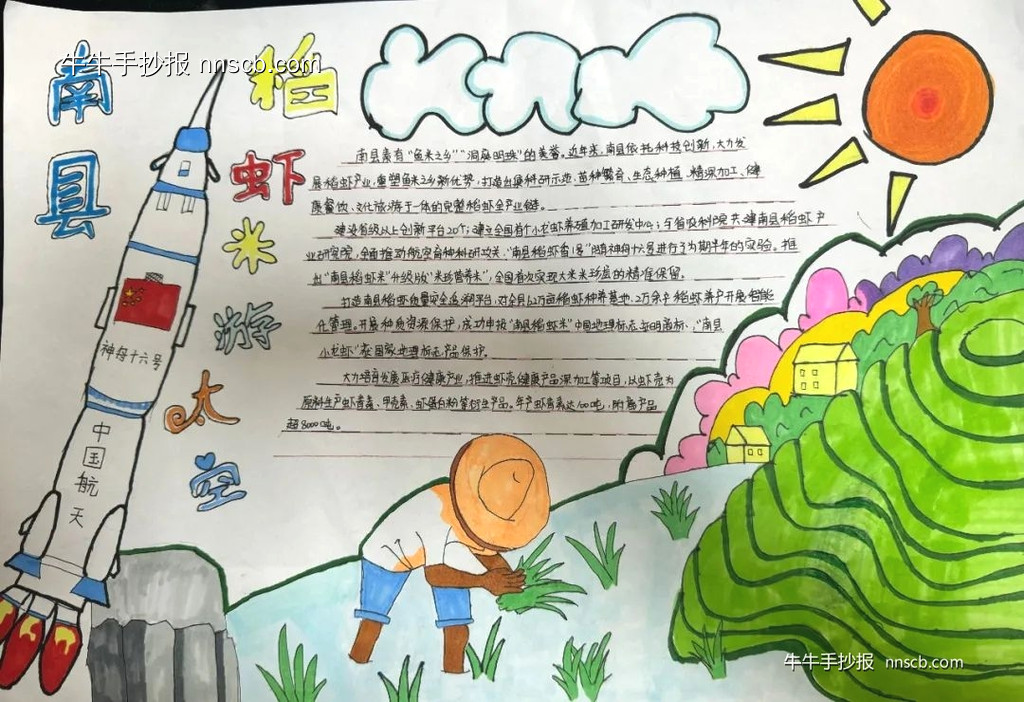 牛牛手抄报 nnscb.com
南县
稻虾米游太空
神舟十六号
中国航天
南县素有“鱼米之乡”“洞庭明珠”的美誉。近年来,南县依托科技创新,大力发
展稻虾产业,重塑鱼米之乡新优势,打造出集科研示范、苗种繁育、生态种植、精深加工、健
康餐饮、文化旅游于一体的完整稻虾全产业链。
建设省级以上创新平台20个;建立全国首个小龙虾养殖加工研发中心;与省农科院共建南县稻虾产
业研究院,全面推动航空育种科研攻关,“南县稻虾香1号”随神舟十六号进行了为期半年的实验。推
出“南县稻虾米”升级版“米珍营养米”,全国首次实现大米米珍层的精准保留。
打造南县稻虾质量安全追溯平台,对全县62万亩稻虾种养基地、2万余户稻虾养户开展智能
化管理。开展种质资源保护,成功申报“南县稻虾米”中国地理标志证明商标、“南县
小龙虾”获国家地理标志产品保护。
大力培育发展医疗健康产业,推进虾壳健康产品深加工等项目,以虾壳为
原料生产虾青素、甲壳素、虾蛋白粉等衍生产品。年产虾青素达100吨,附属产品
超8000吨。
牛牛手抄报 nnscb.com